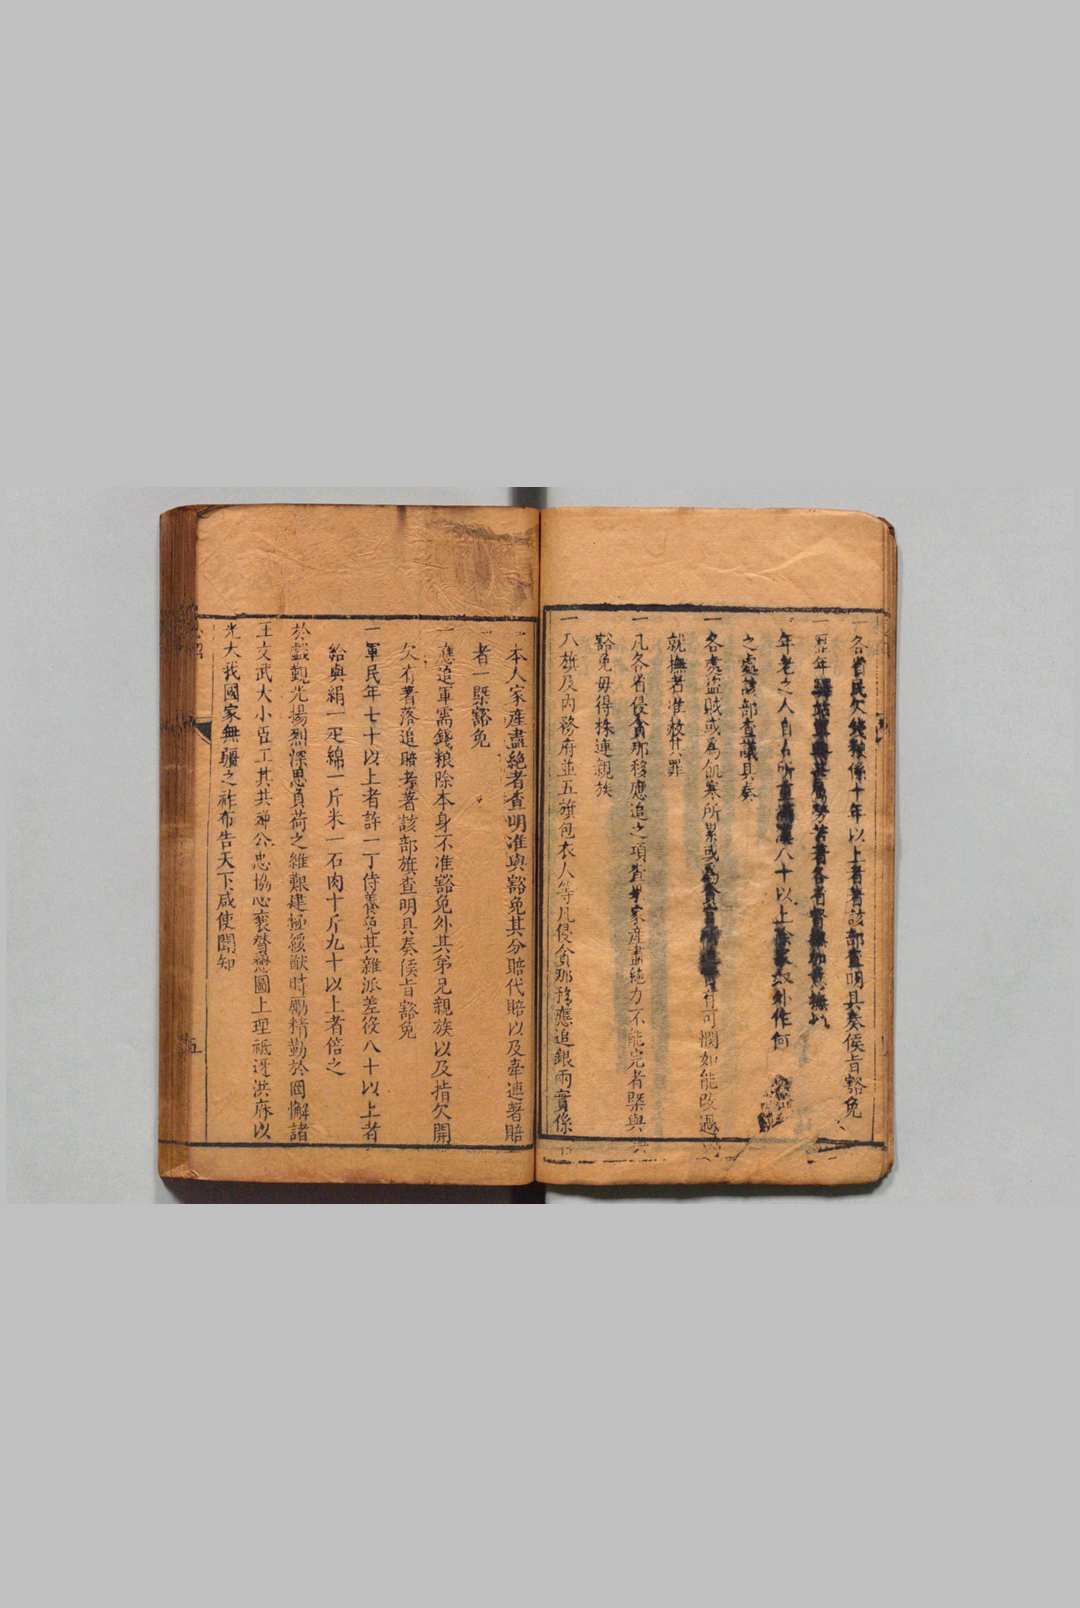 一各省民欠錢粮係十年以上者著該部查明具奏侯旨豁免
一歷年
年老之人自八十以上除家奴外作何
之處該部查議具奏
一各處盜賊或為飢寒所累或為貪官可憫如能改過
就撫者准赦其罪
一凡各省侵貪那移應追之項查果家產盡絕力不能完者槩與
豁免毋得株連親族
一八旗及內務府並五旗包衣人等凡侵貪那移應追銀兩實係
本人家產盡絕者查明准與豁免其分賠代賠以及牽連著賠
者一槩豁免
一應追軍需錢粮除本身不准豁免外其弟兄親族以及指欠開
欠有著落追賠者著該部旗查明具奏侯旨豁免
一軍民年七十以上者許一丁侍養免其雜派差役八十以上者
給與絹一疋綿一斤米一石肉十斤九十以上者倍之
於戲觀光揚烈深思負荷之維艱建極綏猷時勵精勤於罔懈諸
王文武大小臣工其共神公忠協心襄贊懋圖上理祗迓洪庥以
光大我國家無疆之祚布告天下咸使聞知
五